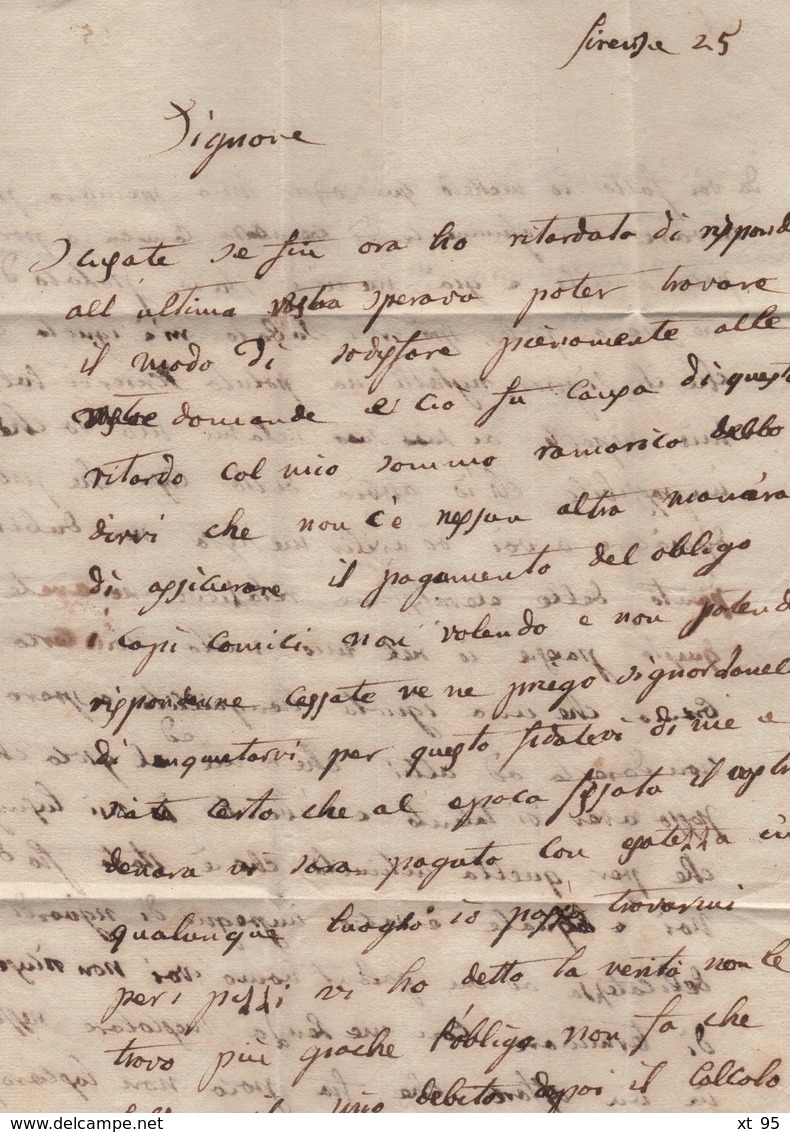 firenze 25
Signore
Scusate se fin ora ho ritardato di rispond
all'ultima vostra sperava poter trovare
il modo di sodisfare pienamente alle
vostre domande e cio fu causa di questo
ritardo col mio sommo ramarico debbo
dirvi che non c'è nessun altra maniera
di assicurare il pagamento del obligo
i capi comici non volendo e non potend
risponderne cessate ve ne prego signor
di inquietarvi per questo fidatevi di me e
siate certo che al epoca fissata il vostr
denaro vi sara pagato con esatezza in
qualunque luogho io possa trovarmi
per i vi ho detto la verità non le
trovo più giache l'obligo non fa che
mio debito dopoi il calcolo
delcampe.net
xt 95